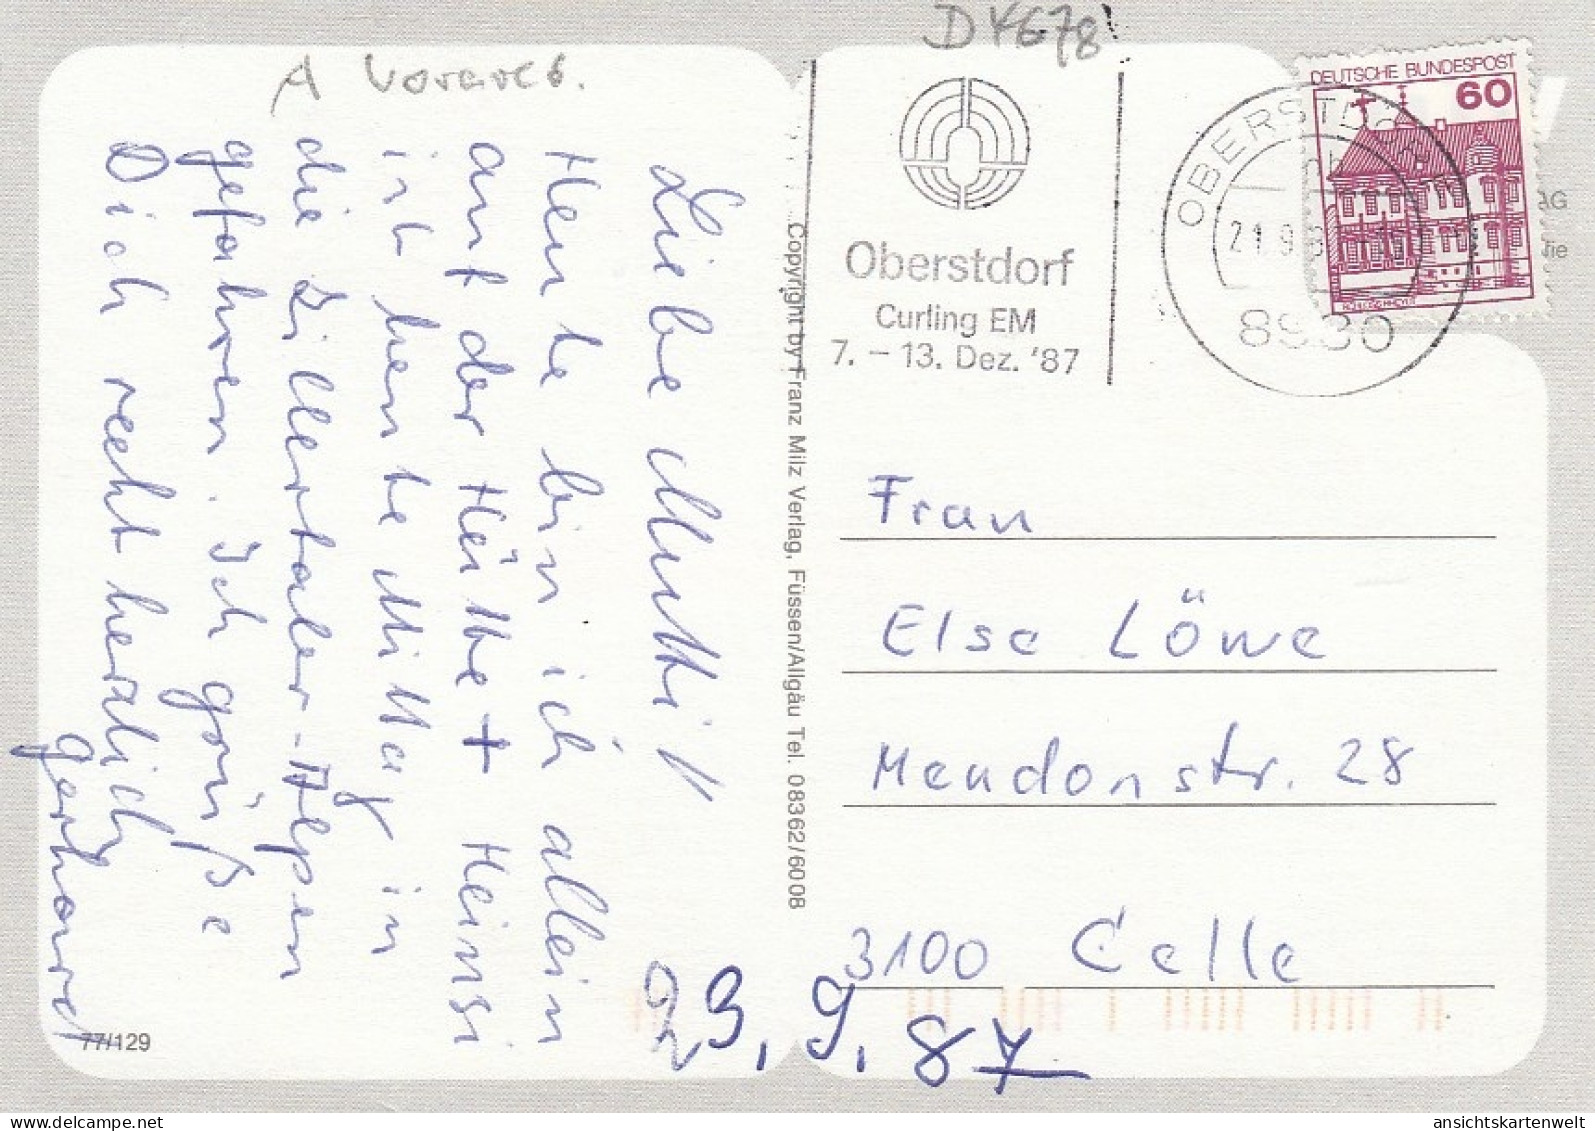 D4678
A Vorarlb.
Liebe Mutti!
Heute bin ich allein
auf der Hütte + Heinsi
ist heute Mittag in
die Zillertaler-Alpen
gefahren. Ich grüße
Dich recht herzlich
Gerhard
77/129
Copyright by Franz Milz Verlag, Füssen/Allgäu Tel. 08362/6008
Oberstdorf
Curling EM
7. – 13. Dez. '87
OBERSTDORF
21.9.
8980
DEUTSCHE BUNDESPOST
60
Frau
Else Löwe
Meudonstr. 28
3100 Celle
23.9.87
ansichtskartenwelt